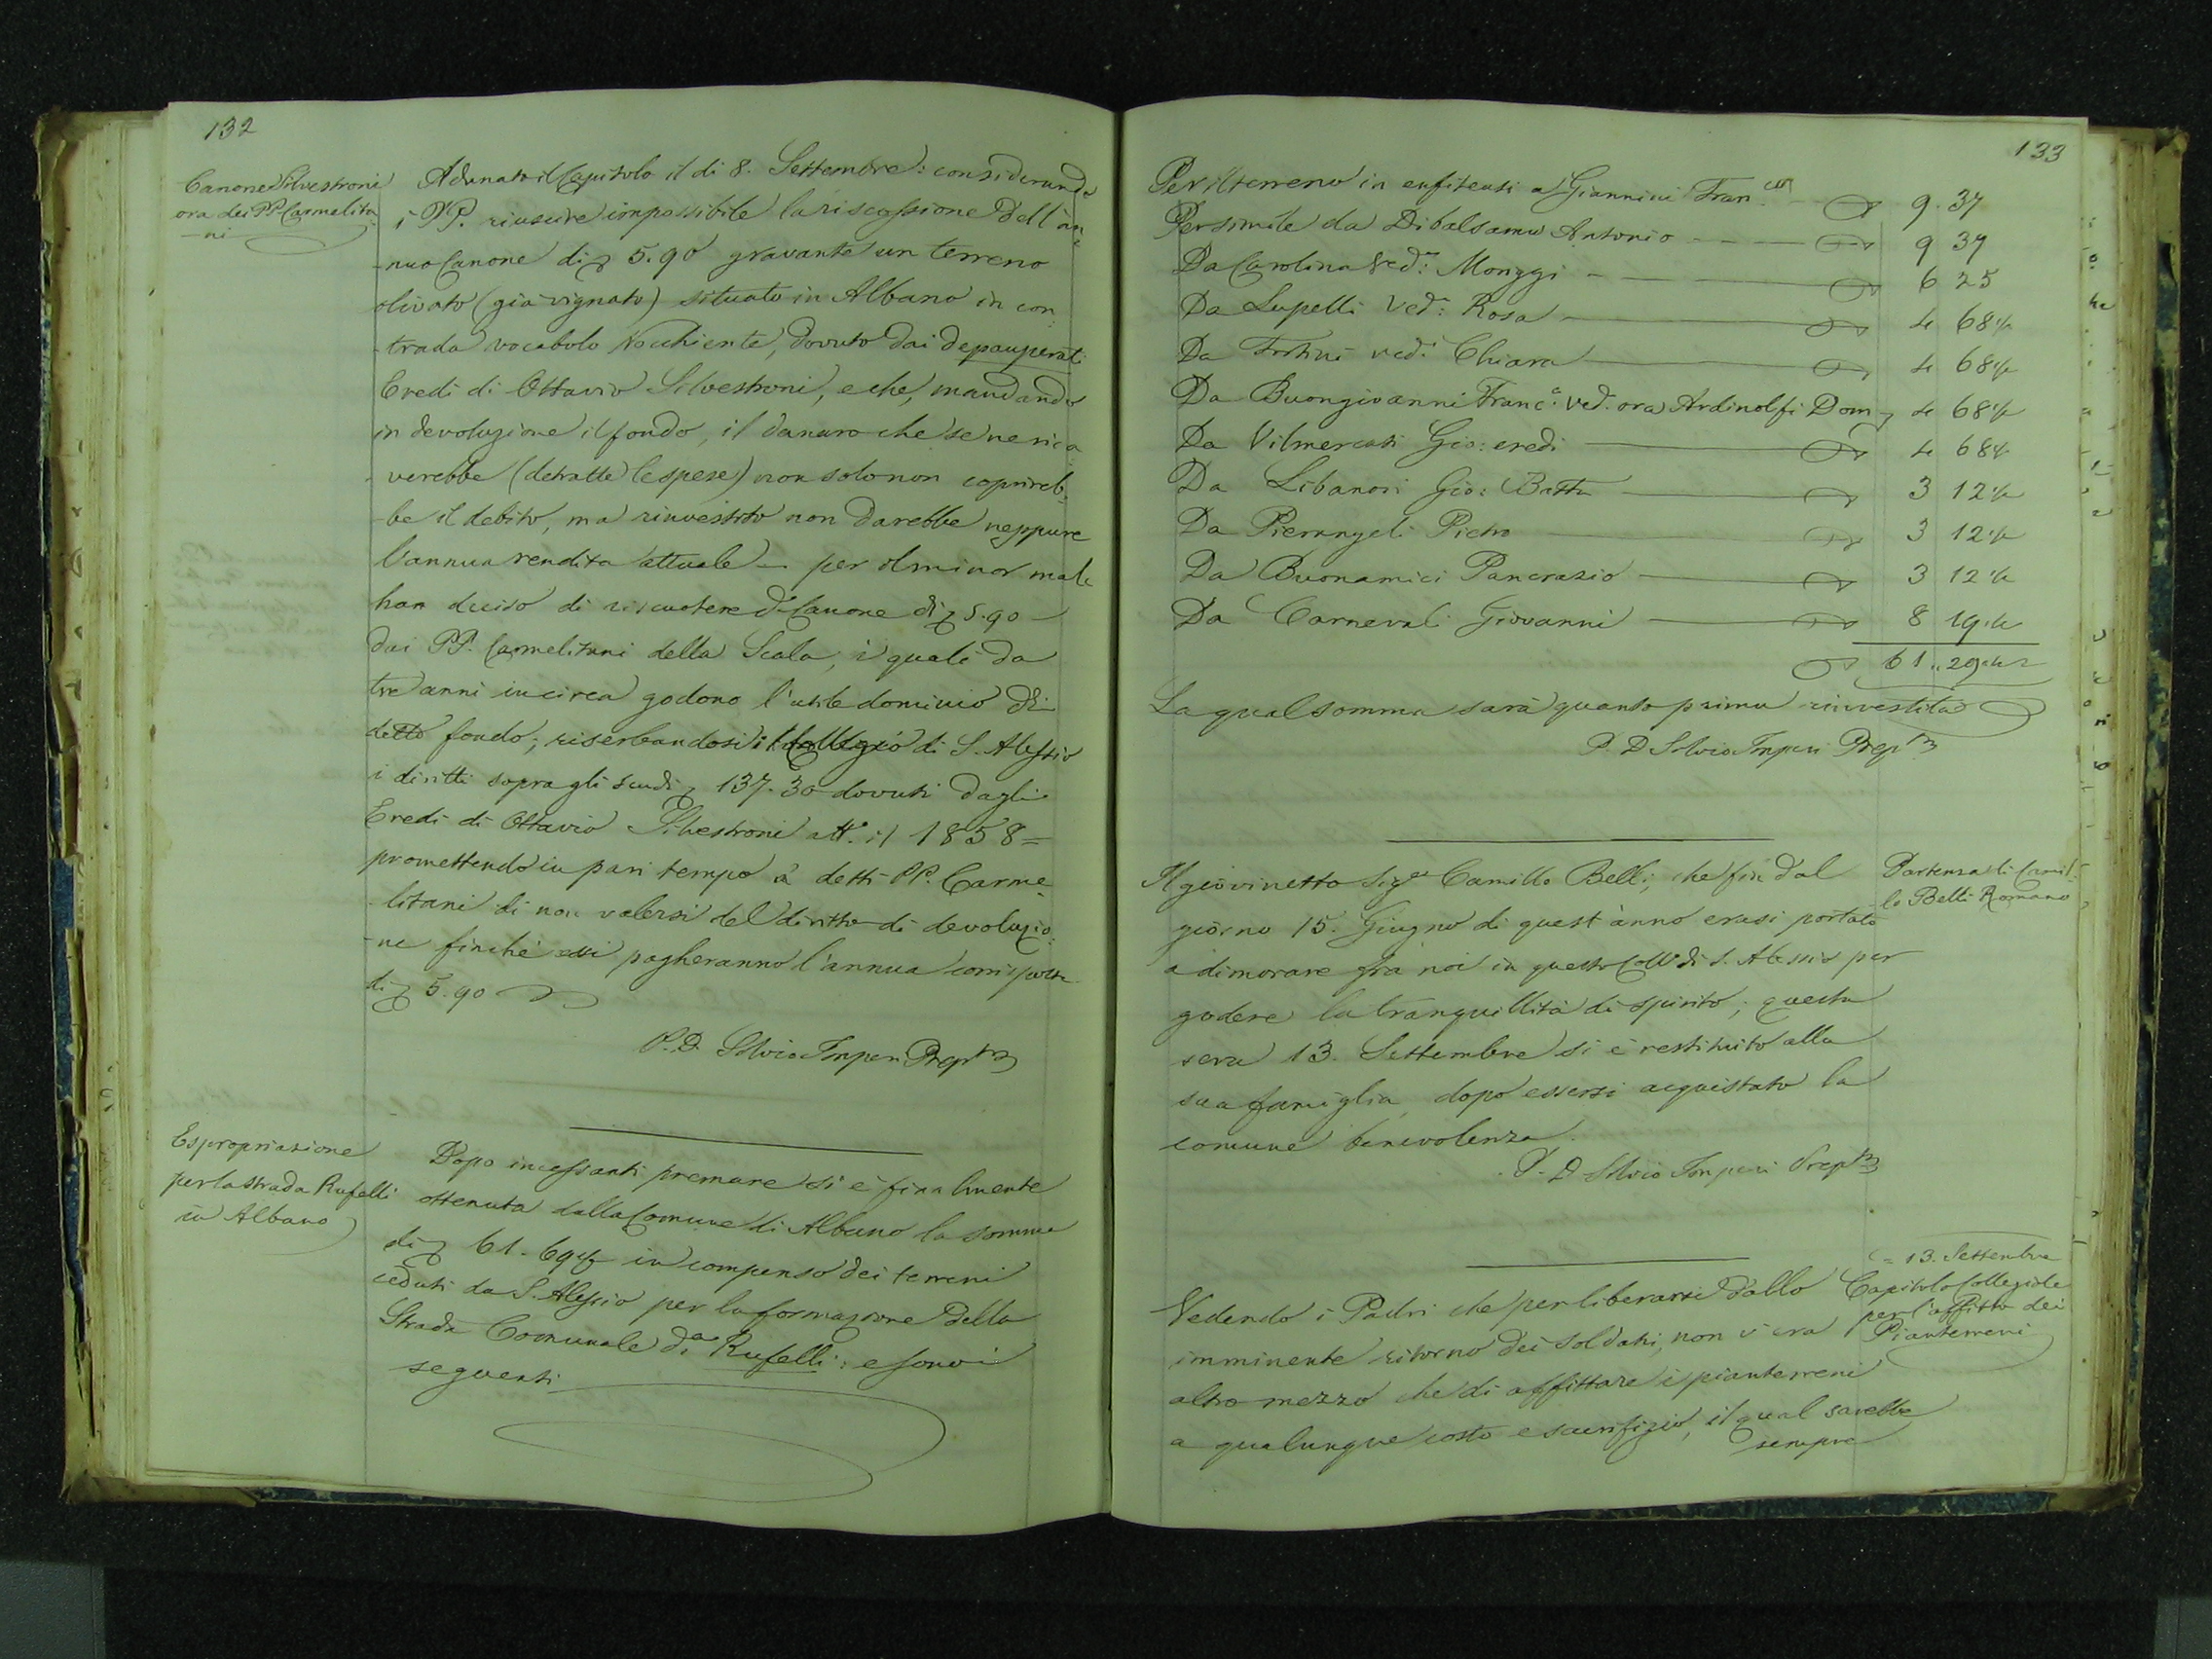 132
Canone Silvestroni
ora dei PP. Carmelita
-ni
Adunato il Capitolo il dì 8. Settembre: considerando
i PP. riuscire impossibile la riscossione dell'an
-nuo Canone di 5.90 gravante un terreno
olivato (già vignato) situato in Albano in con
-trada vocabolo Nocchiente, dovuto dai depauperati
Eredi di Ottavio Silvestroni, e che, mandando
in devoluzione il fondo, il danaro che se ne rica
-verebbe (detratte le spese) non solo non coprireb
-be il debito, ma rinvestito non darebbe neppure
l'annua rendita attuale - per il minor male
han deciso di riscuotere d. Canone di 5.90 -
dai PP. Carmelitani della Scala, i quali da
tre anni in circa godono l'utile dominio di
detto fondo; riserbandosi il Collegio di S. Alessio
i diritti sopra gli scudi 137.30 dovuti dagli
Eredi di Ottavio Silvestroni a tt.º il 1858 =
promettendo in pari tempo a detti PP. Carme
-litani di non valersi del diritto di devoluzio
-ne finché essi pagheranno l'annua corrisposta
di 5.90
P. D. Silvio Imperi Prep.to
Espropriazione
per la strada Rufelli
in Albano
Dopo incessanti premure si è finalmente
ottenuta dalla Comune di Albano la somma
di 61.69 in compenso dei terreni
ceduti da S. Alessio per la formazione della
Strada Comunale di Rufelli: e sono i
seguenti
133
Per il terreno in enfiteusi a Giannini Fran.co 9.37
Per simile da Dibalsamo Antonio 9 37
Da Carolina Ved.: Monggi 6 25
Da Lupelli Ved: Rosa 4 68 ½
Da ved: Chiara 4 68 ½
Da Buongiovanni Franc.a ved. ora Ardinolfi Dom 4 68 ½
Da Vilmercati Gio: eredi 4 68 ½
Da Libanori Gio: Batta 3 12 ½
Da Pierangeli Pietro 3 12 ½
Da Buonamici Pancrazio 3 12 ½
Da Carnevali Giovanni 8 19 ½
61.. 29 ½
La qual somma sarà quanto prima rinvestita
P. D. Silvio Imperi Prep.to
Partenza di Camil
-lo Belli Romano
Il giovinetto Sig.r Camillo Belli, che fin dal
giorno 15. Giugno di quest'anno erasi portato
a dimorare fra noi in questo Coll.o di S. Alessio per
godere la tranquillità di spirito; questa
sera 13. Settembre si è restituito alla
sua famiglia, dopo essersi acquistato la
comune benevolenza.
P. D. Silvio Imperi Prep.to
= 13. Settembre
Capitolo Collegiale
per l'affitto dei
Pianterreni
Vedendo i Padri che per liberarsi dallo
imminente ritorno dei soldati, non v'era
altro mezzo che di affittare i pianterreni
a qualunque costo e sacrifizio, il qual sarebbe
sempre